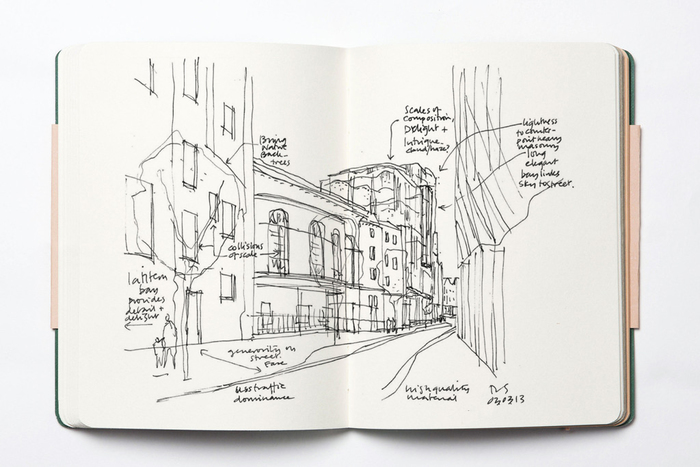 Bring
Native
Back -
trees
collisions
of scale
bay
provides
detail +
delight
generosity on
street
Ease
less traffic
dominance
Scales of
composition,
Delight +
Intrigue.
lightness
to
point heavy
masonry
long
elegant
bay links
sky to street.
high quality
material
030313